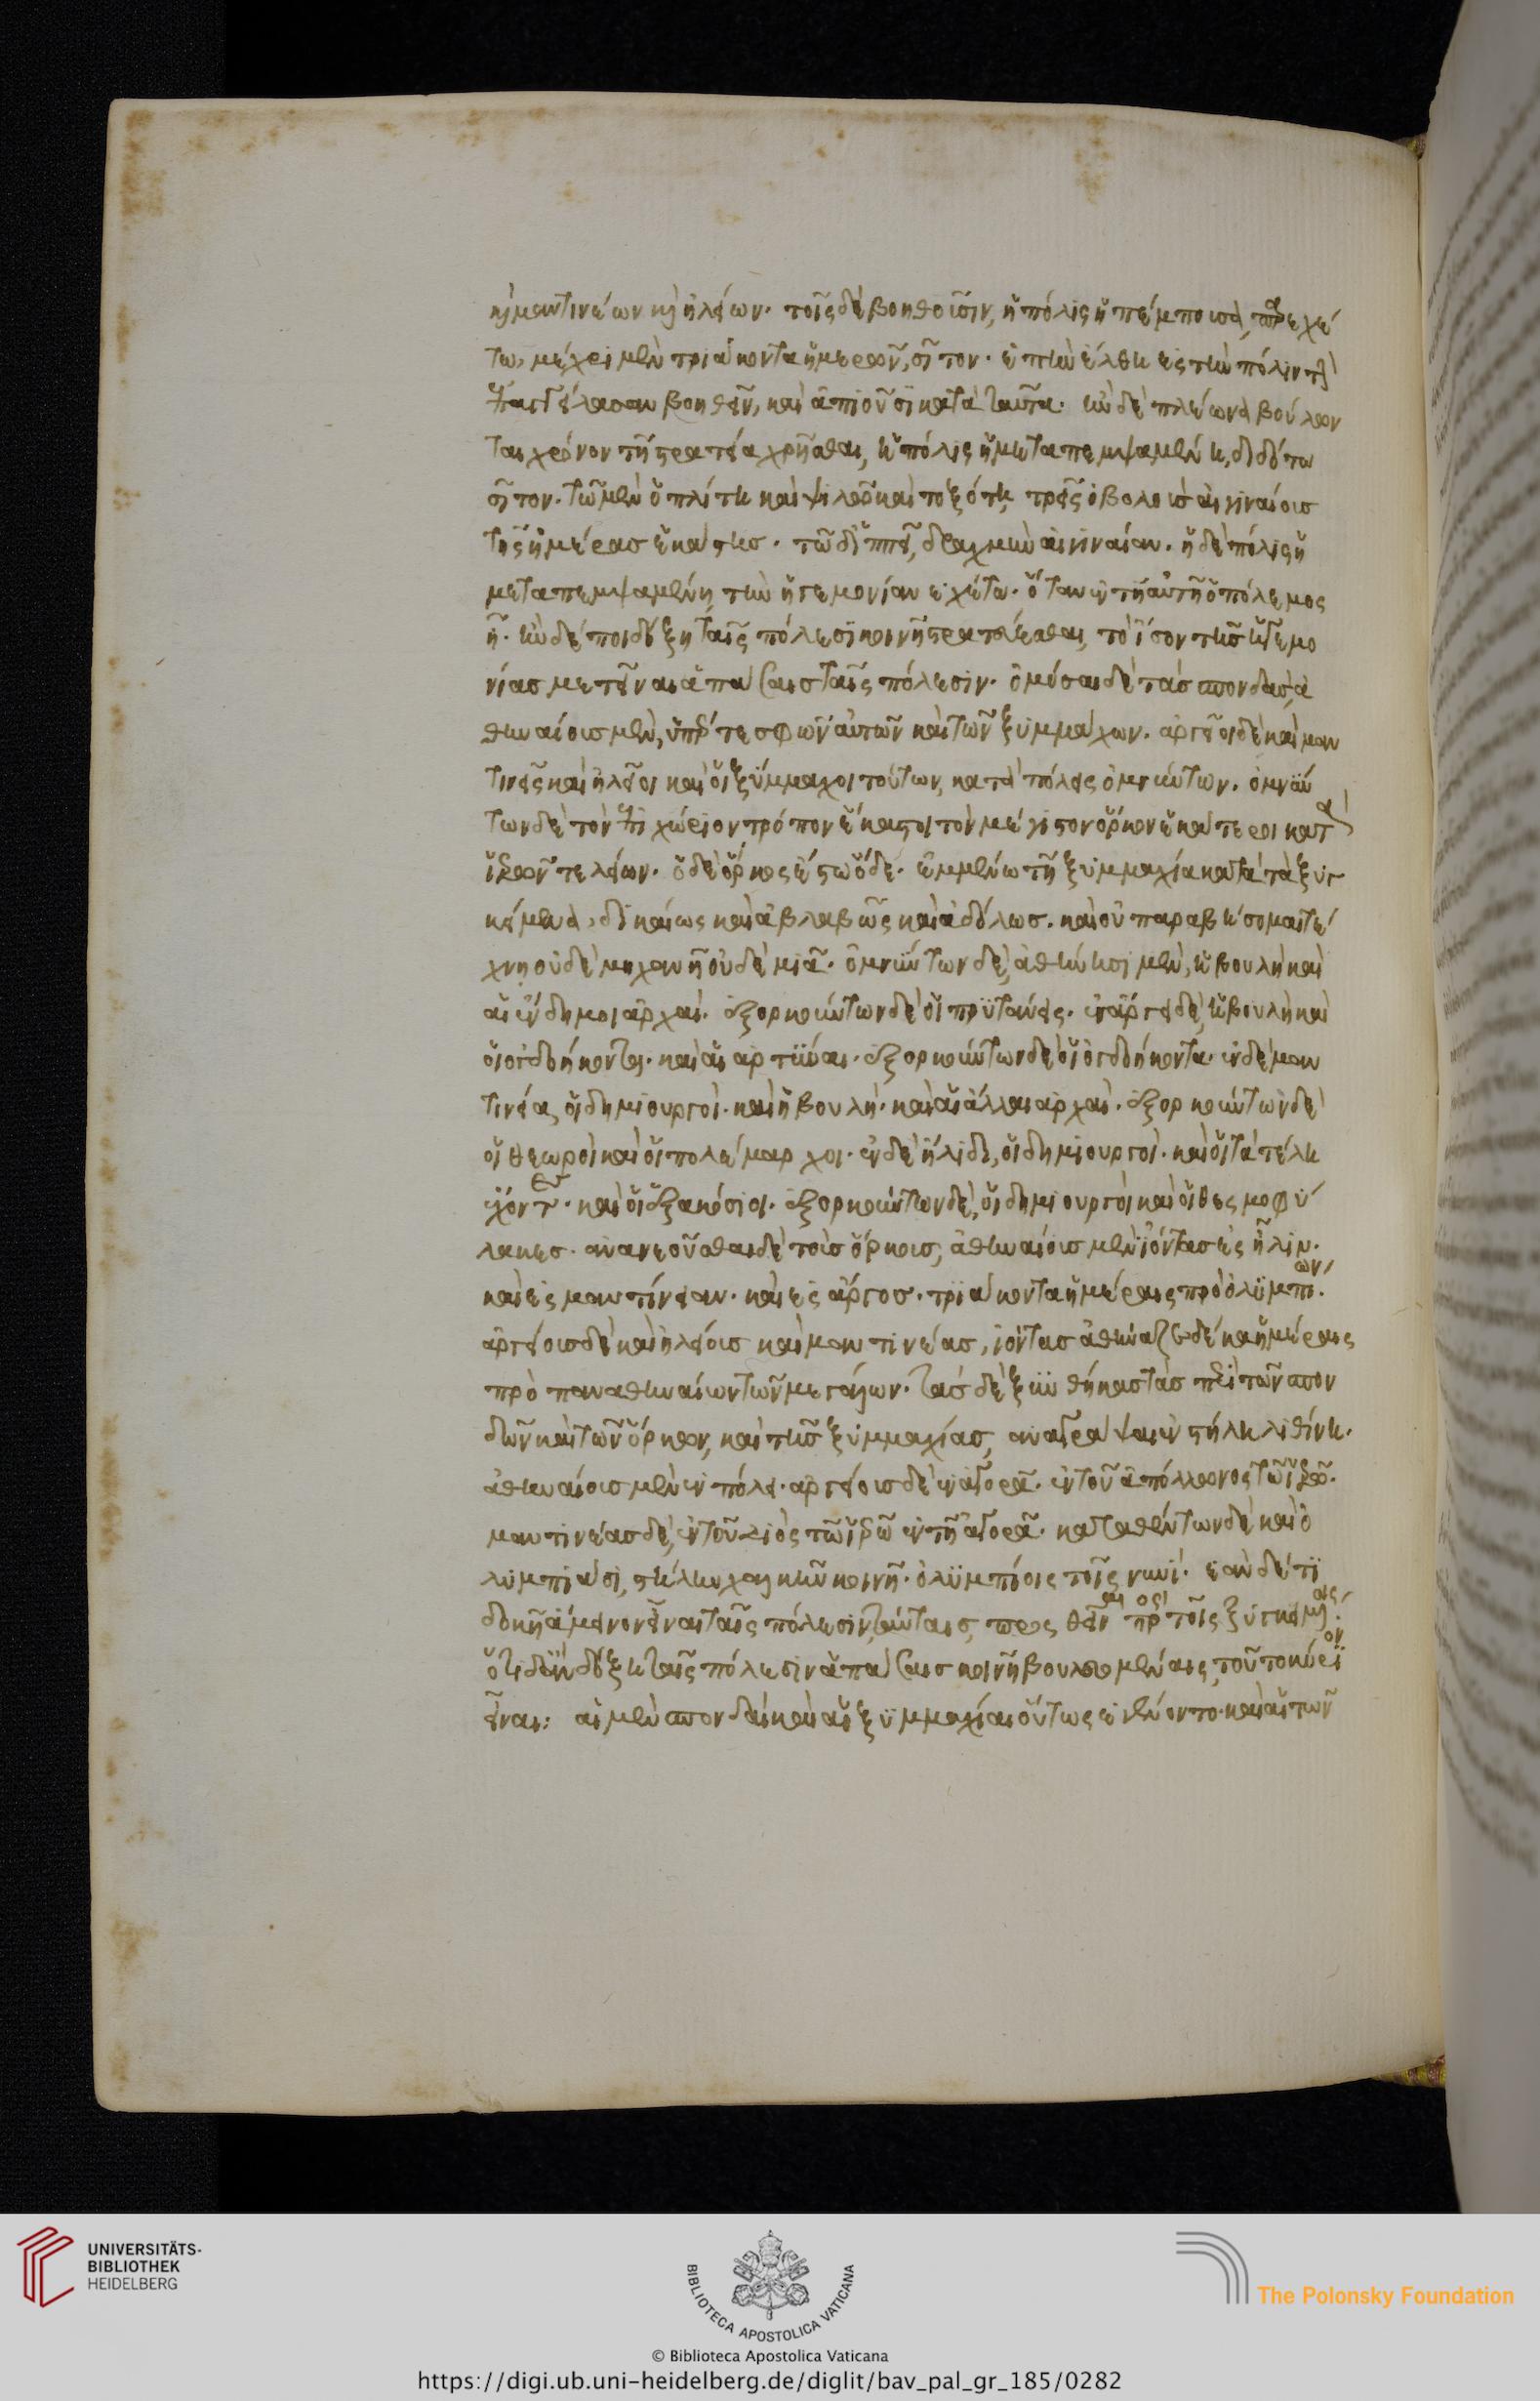 καὶ μαντινέων καὶ ἠλείων. τοῖς δὲ βοηθοῦσιν, ἡ πόλις ἡ πέμπουσα, παρεχέ
τω, μέχρι μὲν τριάκοντα ἡμερῶν, σῖτον. ἐπὴν ἔλθη ἐς τὴν πόλιν τὴν
ἐπαγγείλασαν βοηθεῖν, καὶ ἀπιοῦσι κατὰ ταῦτα. ἢν δὲ πλείωνα βούλων
ται χρόνον τῆ στρατεία χρῆσθαι, ἡ πόλις ἡ μεταπεμψαμένη, διδότω
σῖτον. τῶ μὲν ὁπλίτη καὶ ψιλῶ καὶ τοξότη, τρεῖς ὀβολοὺς αἰγιναίους
τῆς ἡμέρας ἑκάστης. τῶ δ' ἱππεῖ, δραχμὴν αἰγιναίαν. ἡ δὲ πόλις ἡ
μεταπεμψαμένη τὴν ἡγεμονίαν ἐχέτω. ὅταν ἐν τῆ αὐτῆ ὁ πόλεμος
ῆ. ἢν δέ ποι δόξη ταῖς πόλεσι κοινῆ στρατεύεσθαι, τὸ ἴσον τῆς ἡγεμο
νίας μετεῖναι ἁπάσαις ταῖς πόλεσιν. ὀμόσαι δὲ τὰς σπονδὰς, ἀ
θηναίους μὲν, ὑπέρ τε σφῶν αὐτῶν καὶ τῶν ξυμμάχων. ἀργεῖοι δὲ καὶ μαν
τινεῖς καὶ ἠλεῖοι καὶ οἱ ξύμμαχοι τούτων, κατὰ πόλεις ὀμνύντων. ὀμνύν
των δὲ τὸν ἐπιχώριον τρόπον ἕκαστοι τὸν μέγιστον ὅρκον ἑκάτεροι κατὰ
ἱερῶν τελείων. ὁ δὲ ὅρκος ἔστω ὅδε. ἐμμένω τῆ ξυμμαχία κατὰ τὰ ξυγ
κείμενα, δικαίως καὶ ἀβλαβῶς καὶ ἀδόλως. καὶ οὐ παραβήσομαι τέ
χνη οὐδὲ μηχανῆ οὐδὲ μιᾶ. ὀμνύντων δὲ, ἀθήνησι μὲν, ἡ βουλὴ καὶ
αἱ ἔνδημοι ἀρχαί. ἐξορκούντων δὲ οἱ πρυτάνεις. ἐν ἄργει δὲ, ἡ βουλὴ καὶ
οἱ ὀγδοήκοντα. καὶ αἱ ἀρτύναι. ἐξορκούντων δὲ οἱ ὀγδοήκοντα. ἐν δὲ μαν
τινεία, οἱ δημιουργοὶ. καὶ ἡ βουλή. καὶ αἱ ἄλλαι ἀρχαί. ἐξορκούντων δὲ
οἱ θεωροὶ καὶ οἱ πολέμαρχοι. ἐν δὲ ἤλιδι, οἱ δημιουργοί. καὶ οἱ τὰ τέλη
ἔχοντες. καὶ οἱ ἑξακόσιοι. ἐξορκούντων δὲ, οἱ δημιουργοὶ καὶ οἱ θεσμοφύ
λακες. ἀνανεοῦσθαι δὲ τοὺς ὅρκους, ἀθηναίους μὲν ἰόντας ἐς ἦλιν.
καὶ ἐς μαντίνειαν. καὶ ἐς ἄργος. τριάκοντα ἡμέραις πρὸ ὀλυμπίων.
ἀργείους δὲ καὶ ἠλείους καὶ μαντινέας, ἰόντας ἀθήναζε δέκα ἡμέραις
πρὸ παναθηναίων τῶν μεγάλων. τὰς δὲ ξυνθήκας τὰς περὶ τῶν σπον
δῶν καὶ τῶν ὅρκων, καὶ τῆς ξυμμαχίας, ἀναγράψαι ἐν στήλη λιθίνη.
ἀθηναίους μὲν ἐν πόλει. ἀργείους δὲ ἐν ἀγορᾶ. ἐν τοῦ ἀπόλλωνος τῶ ἱερῶ.
μαντινέας δὲ, ἐν τοῦ διὸς τῶ ἱερῶ ἐν τῆ ἀγορᾶ. καταθέντων δὲ καὶ ὀ
λυμπιάσι, στήλην χαλκῆν κοινῆ. ὀλυμπίοις τοῖς νυνί. ἐὰν δέ τι
δοκῆ ἄμεινον εἶναι ταῖς πόλεσιν ταύταις, προσθεῖναι πρὸς τοῖς ξυγκειμένοις.
ὅτι δ' ἂν δόξη ταῖς πόλεσιν ἁπάσαις κοινῆ βουλευομέναις, τοῦτο κύριον
εἶναι: αἱ μὲν σπονδαὶ καὶ αἱ ξυμμαχίαι οὕτως ἐγένοντο. καὶ αἱ τῶν
UNIVERSITÄTS-
BIBLIOTHEK
HEIDELBERG
BIBLIOTECA APOSTOLICA VATICANA
The Polonsky Foundation
© Biblioteca Apostolica Vaticana
https://digi.ub.uni-heidelberg.de/diglit/bav_pal_gr_185/0282